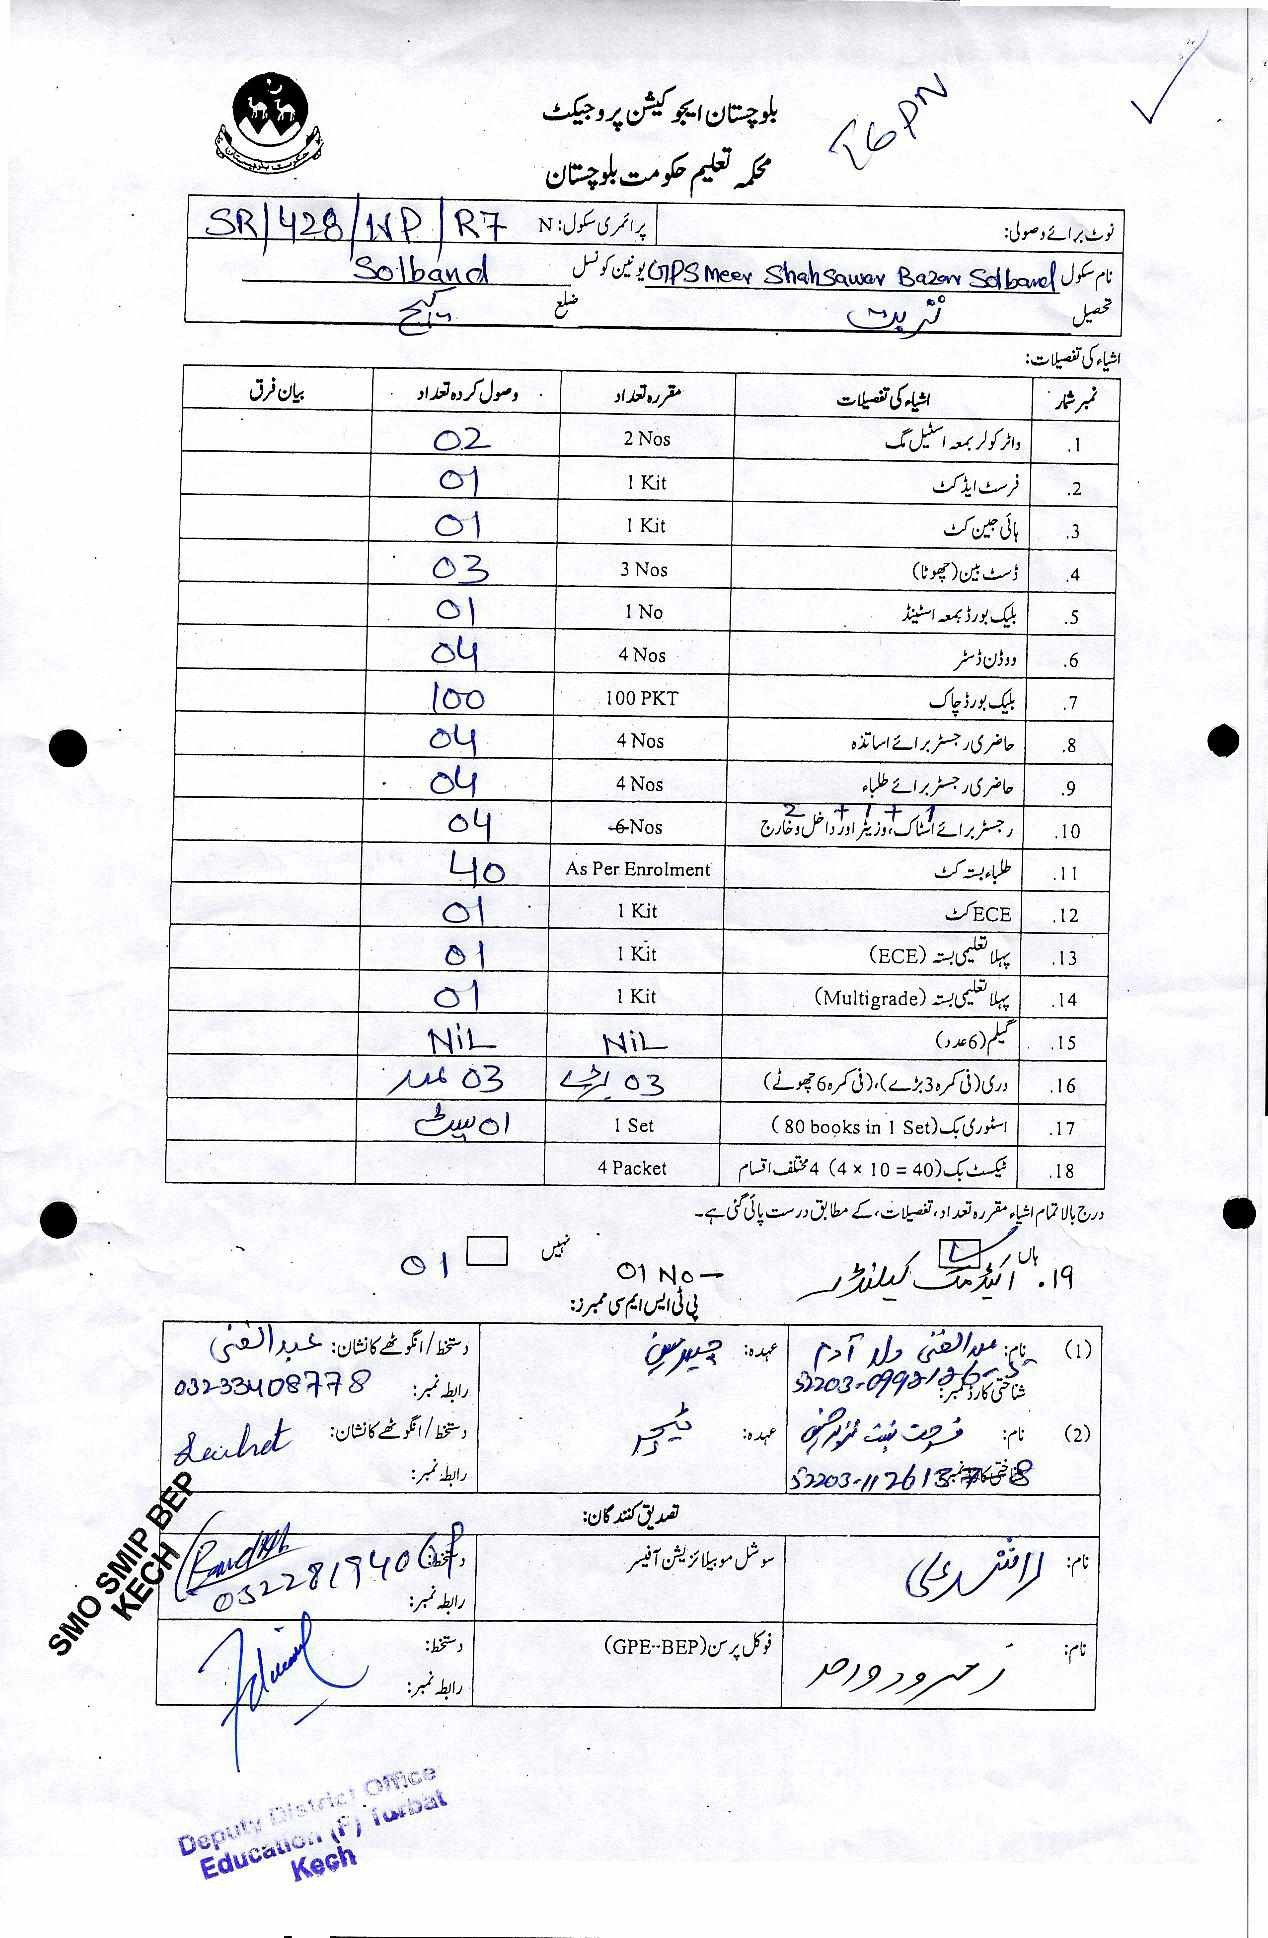 بلوچستان ایجوکیشن پروجیکٹ
محکمہ تعلیم حکومت بلوچستان
نوٹ برائے وصولی: پرائمری سکول: N SR/428/NP/R7
نام سکول GPS Meer Shahsawar Bazar Solband یونین کونسل Solband
تحصیل تربت ضلع کیچ
اشیاء کی تفصیلات:
نمبر شمار اشیاء کی تفصیلات مقررہ تعداد وصول کردہ تعداد بیان فرق
.1 واٹر کولر بمعہ اسٹیل مگ 2 Nos 02
.2 فرسٹ ایڈ کٹ 1 Kit 01
.3 ہائی جین کٹ 1 Kit 01
.4 ڈسٹ بین (چھوٹا) 3 Nos 03
.5 بلیک بورڈ بمعہ اسٹینڈ 1 No 01
.6 ووڈن ڈسٹر 4 Nos 04
.7 بلیک بورڈ چاک 100 PKT 100
.8 حاضری رجسٹر برائے اساتذہ 4 Nos 04
.9 حاضری رجسٹر برائے طلباء 4 Nos 04
2 + 1 + 1
.10 رجسٹر برائے اسٹاک، وزیٹر اور داخل و خارج 6 Nos 04
.11 طلباء بستہ کٹ As Per Enrolment 40
.12 ECE کٹ 1 Kit 01
.13 پہلا تعلیمی بستہ (ECE) 1 Kit 01
.14 پہلا تعلیمی بستہ (Multigrade) 1 Kit 01
.15 گیلم (6 عدد) NiL NiL
.16 دری (فی کمرہ 3 بڑے)، (فی کمرہ 6 چھوٹے) 03 بڑے 03 عدد
.17 اسٹوری بک (80 books in 1 Set) 1 Set 01 سیٹ
.18 ٹیکسٹ بک (4 × 10 = 40) 4 مختلف اقسام 4 Packet
درج بالا تمام اشیاء مقررہ تعداد، تفصیلات، کے مطابق درست پائی گئی ہے۔
ہاں نہیں
۱۹. اکیڈمک کیلنڈر 01 No 01
پی ٹی ایس ایم سی ممبرز:
(1) نام: عبدالغنی ولد آدم عہدہ: چیئرمین دستخط/انگوٹھے کا نشان: عبدالغنی
شناختی کارڈ نمبر: رابطہ نمبر: 03233408778
(2) نام: عہدہ: ٹیچر دستخط/انگوٹھے کا نشان:
شناختی کارڈ نمبر: 52203-1126137-8 رابطہ نمبر:
تصدیق کنندگان:
نام: سوشل موبیلائزیشن آفیسر دستخط:
رابطہ نمبر:
نام: فوکل پرسن (GPE--BEP) دستخط:
رابطہ نمبر:
SMO SMIP BEP
KECH
Deputy District Office
Education (F) Turbat
Kech